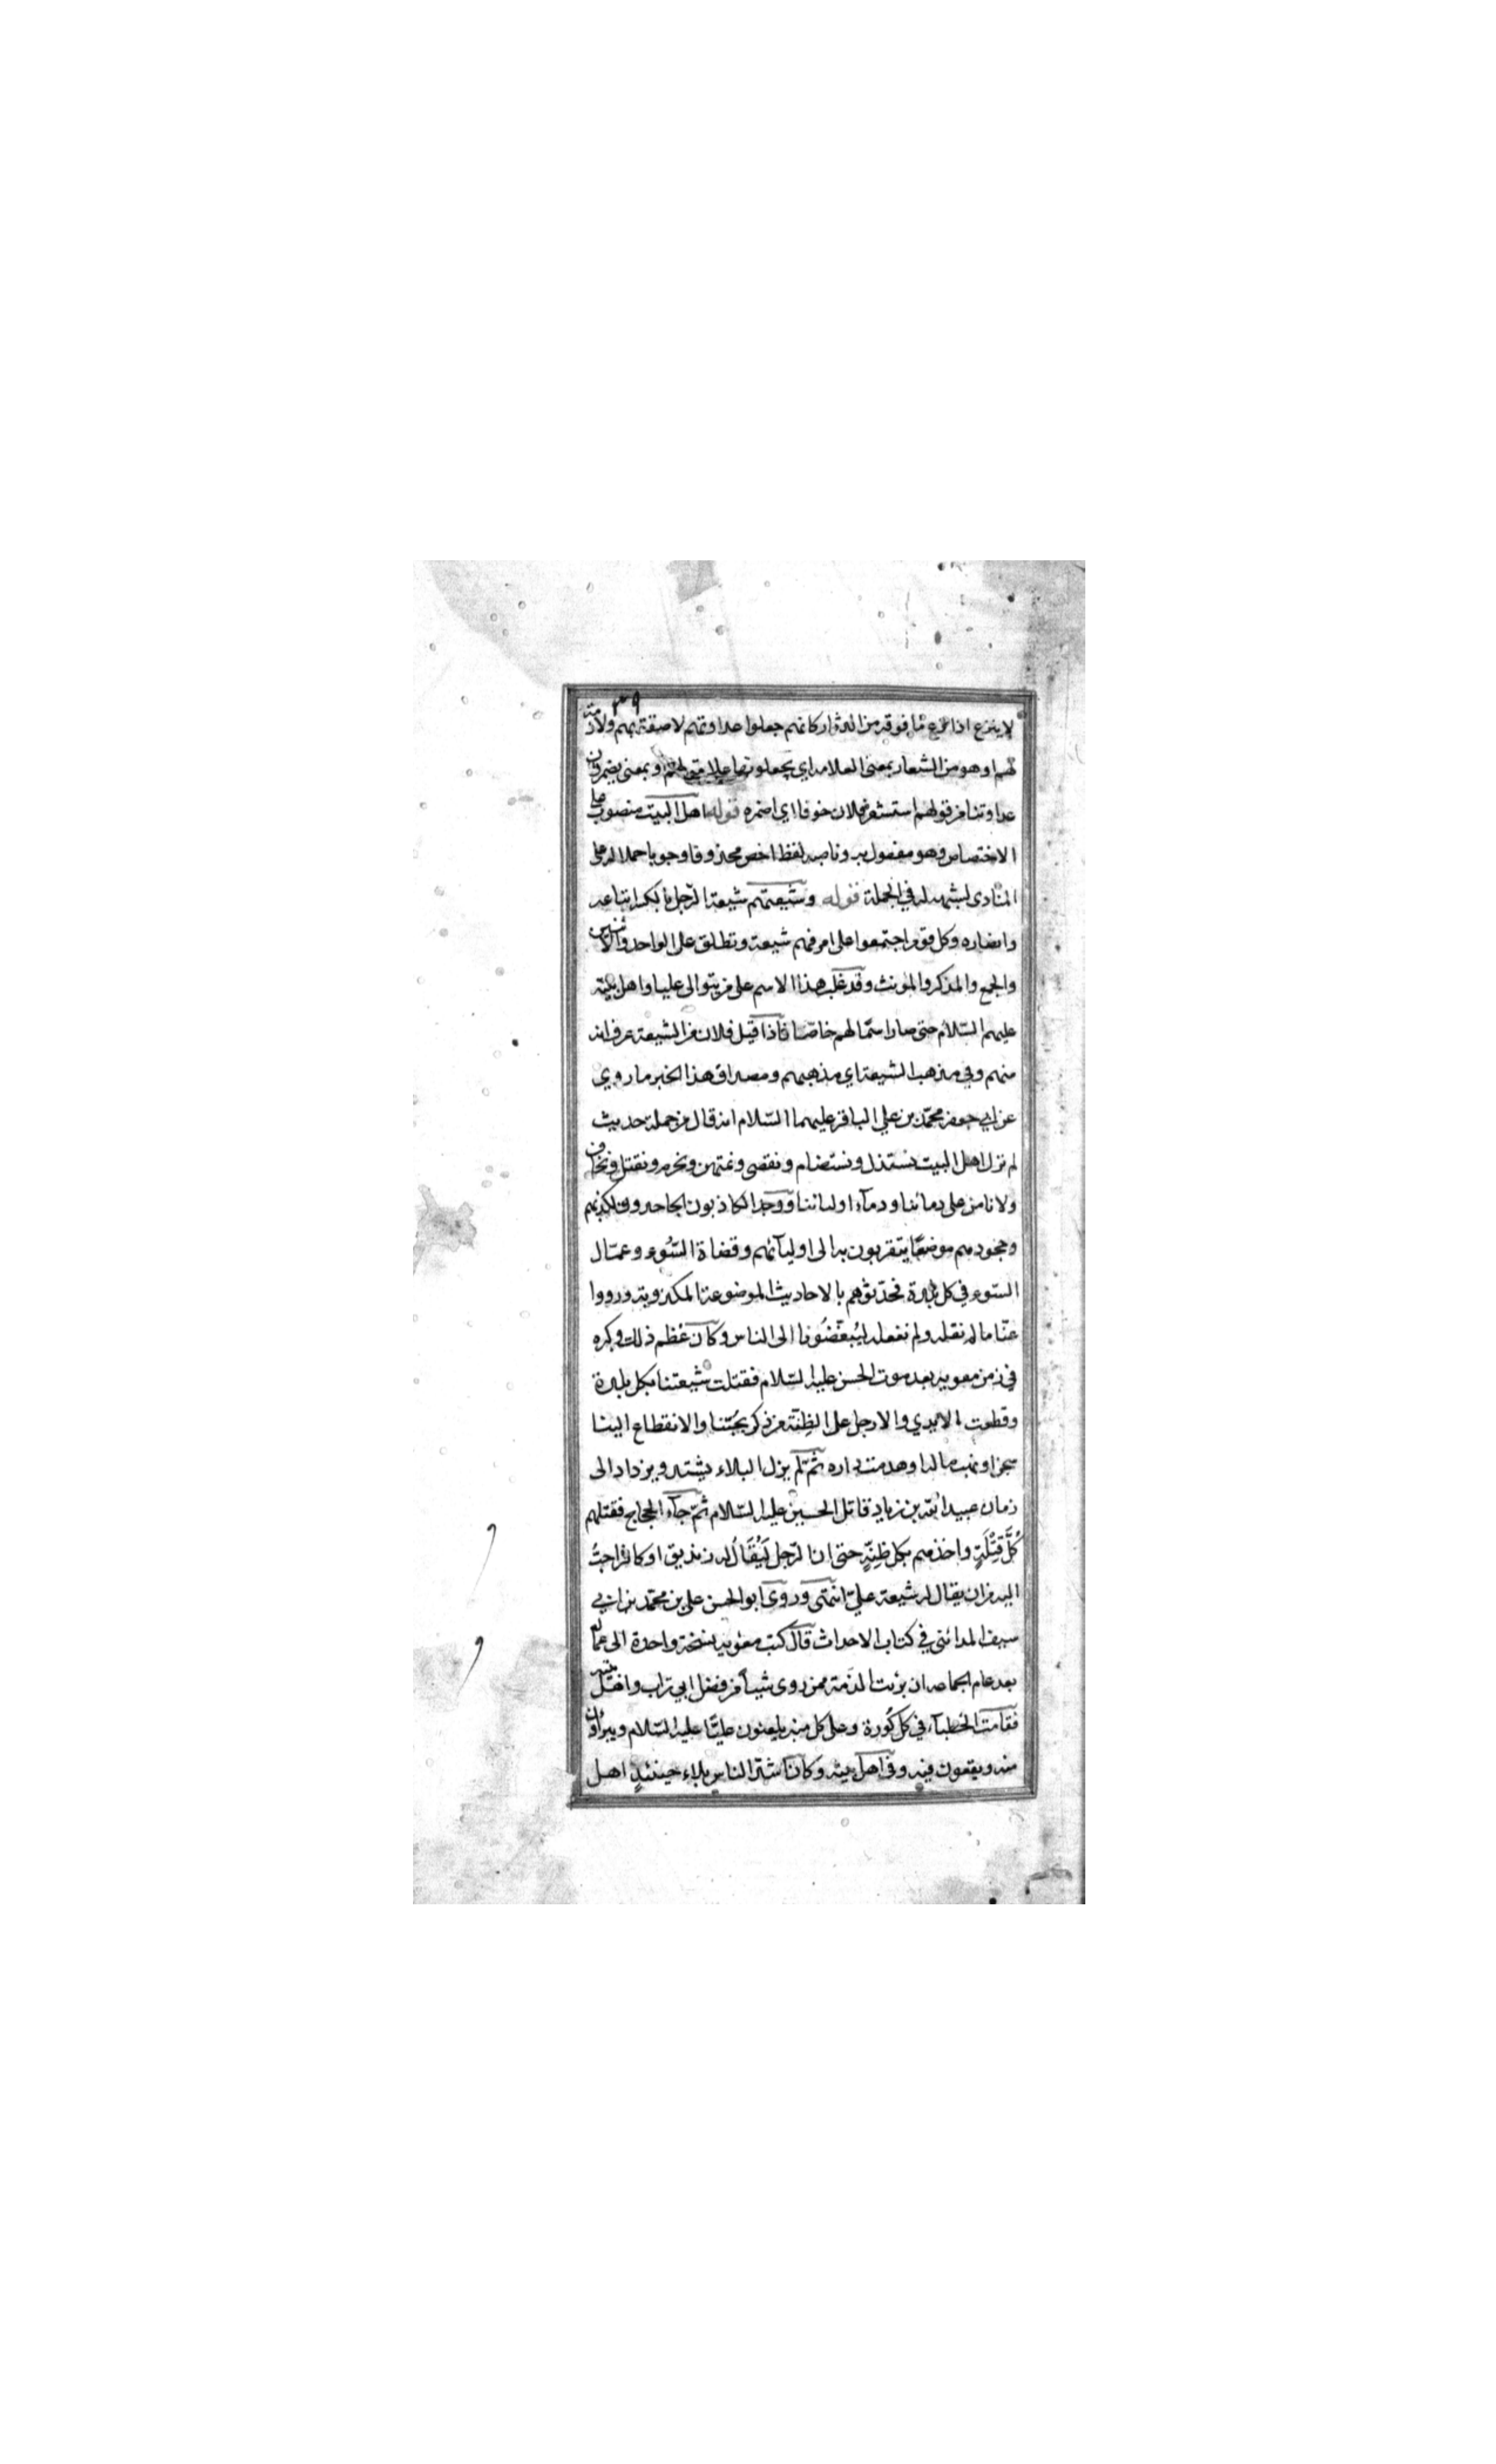 ٣٩
لا ينزع اذا نزع ما فوقه من الدثار كانهم جعلوا عداوتهم لاصقة بهم ولازمة
لهم او هو من الشعار بمعنى العلامة اي يجعلونها علامة لهم او بمعنى يضمرون
عداوتنا من قولهم استشعر فلان خوفا اي اضمره قوله اهل البيت منصوب على
الاختصاص وهو مفعول به وناصبه لفظ اخص محذوفا وجوبا حملا له على
المنادى لشبهه له في الجملة قوله وشيعتهم شيعة الرجل بالكسر اتباعه
وانصاره وكل قوم اجتمعوا على امر فهم شيعة وتطلق على الواحد والاثنين
والجمع والمذكر والمونث وقد غلب هذا الاسم على من يتوالى عليا واهل بيته
عليهم السّلام حتى صار اسمًا لهم خاصّا فاذا قيل فلان من الشيعة عرف انه
منهم وفي مذهب الشيعة اي مذهبهم ومصداق هذا الخبر ما روي
عن ابي جعفر محمّد بن علي الباقر عليهما السّلام انه قال من جملة حديث
لم نزل اهل البيت نستذل ونستضام ونقصى ونمتهن ونحرم ونقتل ونخاف
ولا نامن على دمائنا ودماء اوليائنا ووجد الكاذبون الجاحدون لكذبهم
وجحودهم موضعًا يتقربون به الى اوليائهم وقضاة السّوء وعمّال
السّوء في كل بلدة فحدّثوهم بالاحاديث الموضوعة المكذوبة ورووا
عنّا ما لم نقله ولم نفعله ليُبغّضُونا الى الناس وكان عُظم ذلك وكبره
في زمن معوية بعد موت الحسن عليه السّلام فقتلت شيعتنا بكل بلدة
وقطعت الايدي والارجل على الظِنّة من ذكر بحُبّنا والانقطاع الينا
سجن او نهب ماله او هدمت داره ثمّ لم يزل البلاء يشتد ويزداد الى
زمان عبيد الله بن زياد قاتل الحسين عليه السّلام ثمّ جآء الحجاج فقتلهم
كُلَّ قِتْلَةٍ واخذهم بكل ظِنّةٍ حتى ان الرّجل لَيُقَالُ له زنذيق او كافر احبُّ
اليه من ان يقال له شيعة عليّ انتهى وروى ابو الحسن علي بن محمّد بن ابي
سيف المدائني في كتاب الاحداث قال كتب معوية نسخة واحدة الى عماله
بعد عام الجماعة ان برئت الذمة ممن روى شيئا من فضل ابي تراب واهل بيته
فقامت الخطباء في كل كُورة وعلى كل منبر يلعنون عليًّا عليه السّلام ويبراؤن
منه ويقعون فيه وفي اهل بيته وكان اشدّ الناس بلاء حينئذٍ اهل